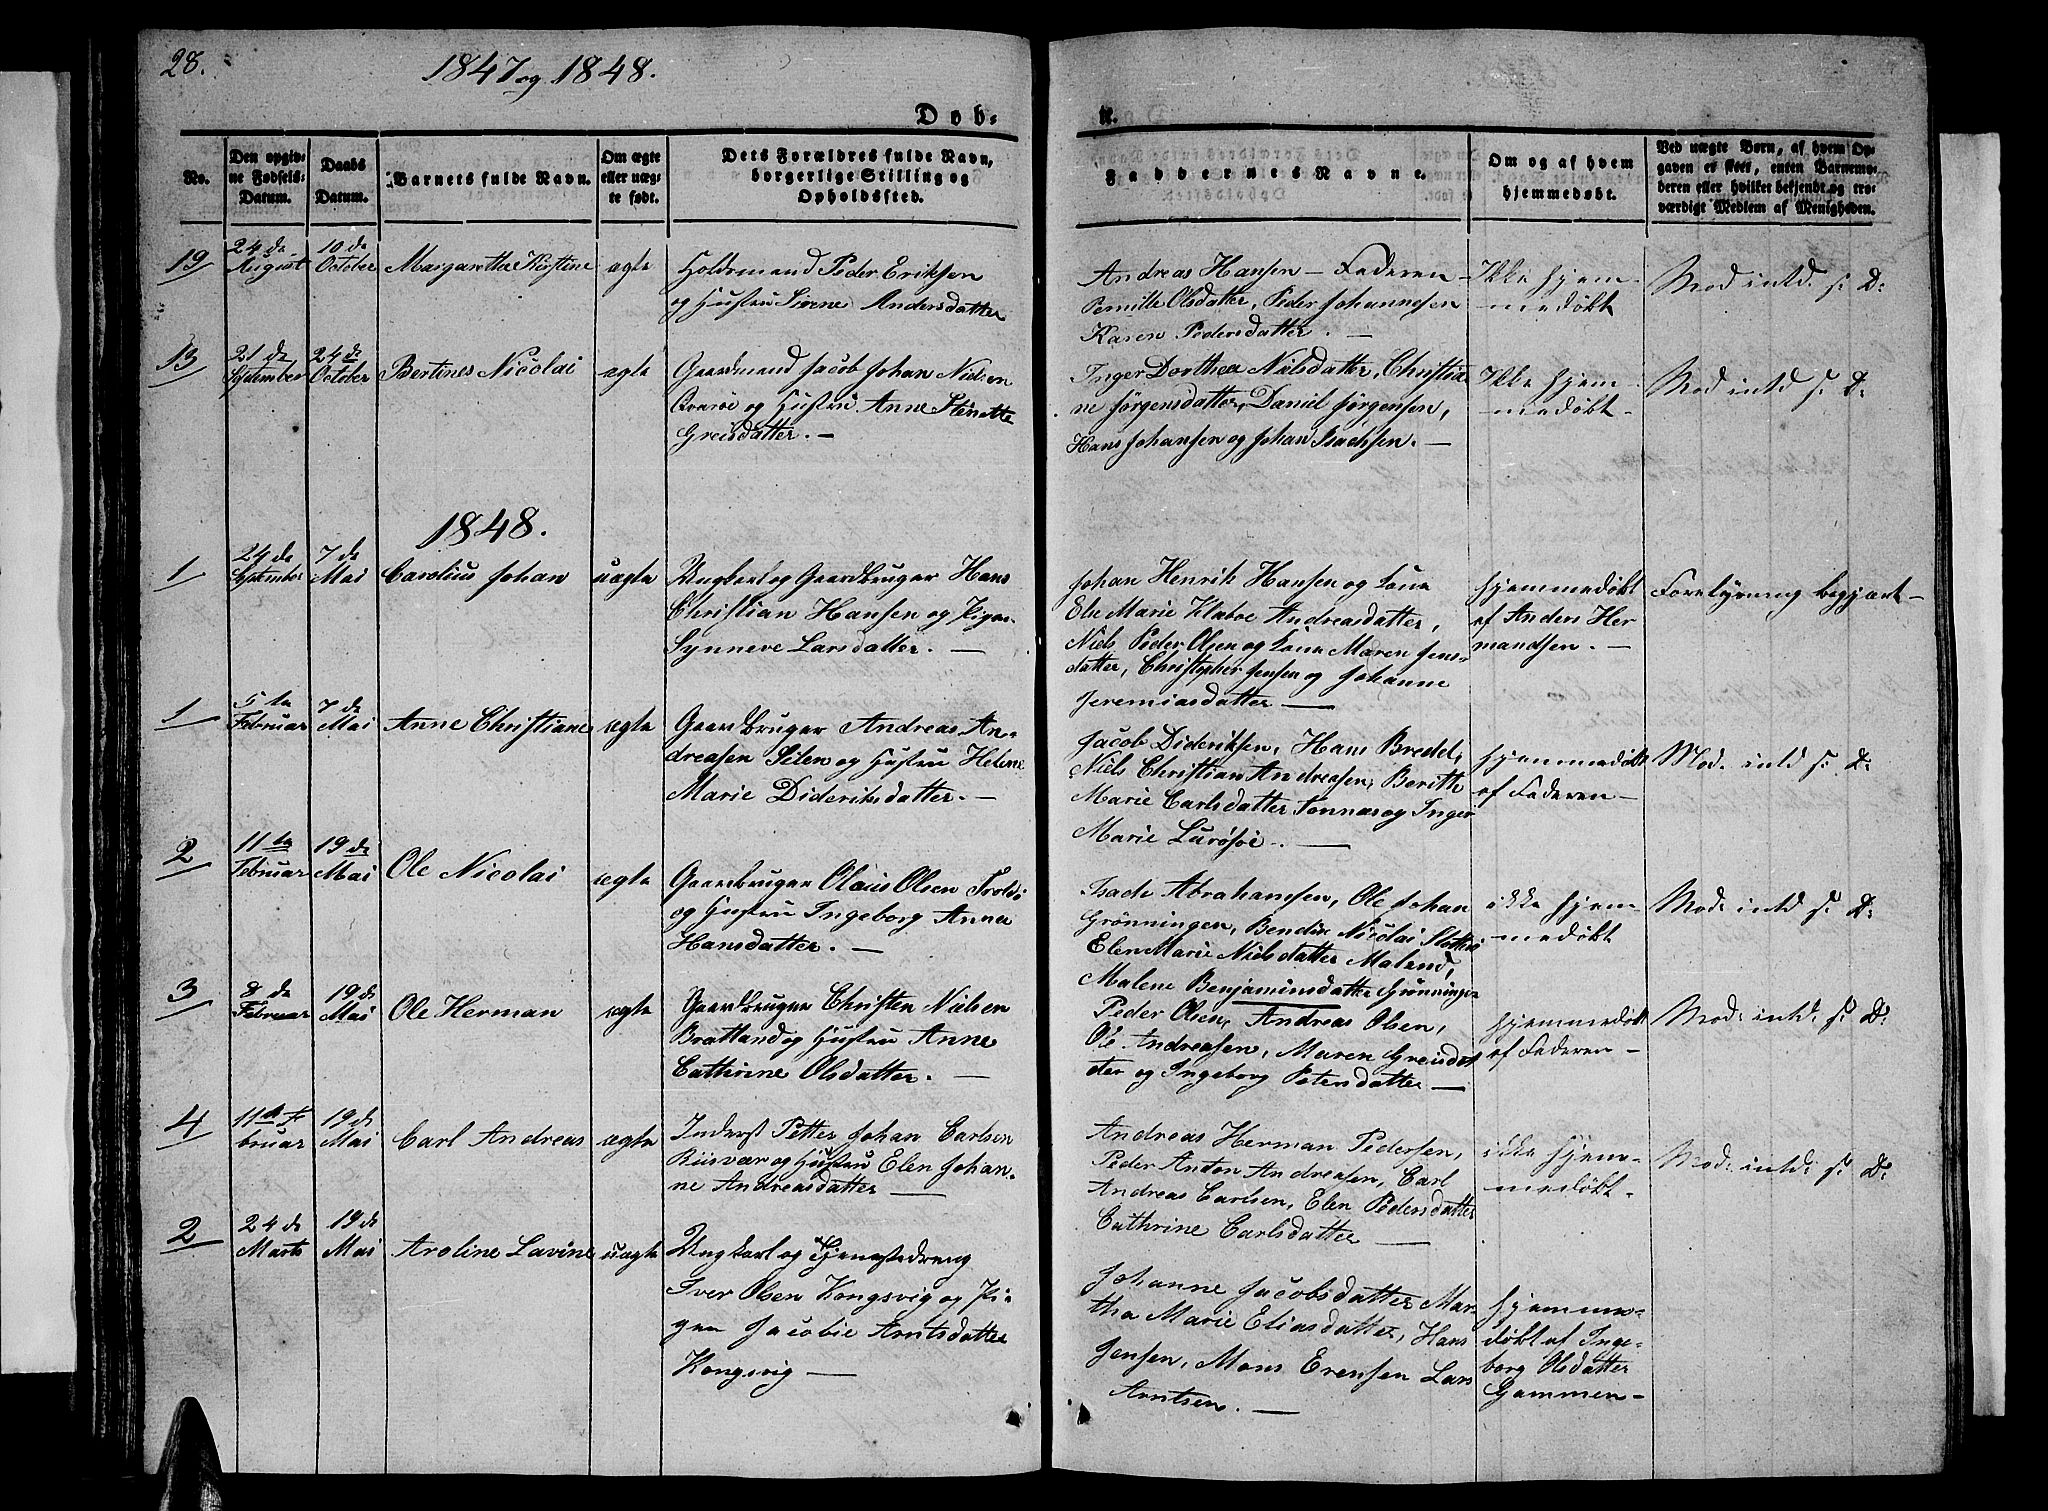 28.
1847 og 1848.
Døb-
te.
No.
Den opgiv-
ne Fødsels-
Datum.
Daabs
Datum.
Barnets fulde Navn.
Om ægte
eller uæg-
te født.
Dets Forældres fulde Navn,
borgerlige Stilling og
Opholdssted.
Faddernes Navne.
Om og af hvem
hjemmedøbt.
Ved uægte Børn, af hvem Op-
gaven er skeet, enten Barnemo-
deren eller hvilket bekjendt og tro-
værdigt Medlem af Menigheden.
19
24 de
August
10 de
October
Margaretha Kirstine
ægte
Holdsmand Peder Eriksen
og Hustru Sirene Andersdatter
Andreas Hansen — Faderen —
Pernille Olsdatter, Peder Johannesen
Karen Pedersdatter. —
Ikke hjem-
medøbt
Mod: intd. s: D:
13
21 de
September
24 de
October
Bertines Nicolai
ægte
Gaardmand Jacob Johan Nielsen
Qvarøe og Hustru Anne Stinette
Greisdatter. —
Inger Dorthea Nielsdatter, Christia-
ne Jørgensdatter, Daniel Jørgensen,
Hans Johansen og Johan Isachsen. —
Ikke hjem-
medøbt -
Mod intd s: D:
1848.
1
24 de
September
7 de
Mai
Carolius Johan
uægte
Ungkarl og Gaardbruger Hans
Christian Hansen og Pigen
Synneve Larsdatter. —
Johan Henrik Hansen og Kone
Ele Marie Klaboe Andreasdatter,
Niels Peder Olsen og Kone Maren Jens-
datter, Christopher Jensen og Johanne
Jeremiasdatter —
hjemmedøbt
af Anders Her
mandsen. —
Forelysning begjært —
1
5 te
Februar
7 de
Mai
Anne Christiane
ægte
Gaardbruger Andreas An-
dreasen Selen og Hustru Helene
Marie Dideriksdatter. —
Jacob Dideriksen, Hans Bredel,
Niels Christian Andreasen, Berith
Marie Carlsdatter Tonnes og Inger
Marie Lurøsøe. —
hjemmedøbt
af Faderen —
Mod. intd s: D:
2
11 te
Februar
19 de
Mai
Ole Nicolai
ægte
Gaardbruger Olaus Olsen
og Hustru Ingeborg Anna
Hansdatter. —
Isach Abrahamsen, Ole Johan
Grønningen, Bendix Nicolai
Elen Marie Nielsdatter Maland,
Malene Benjaminsdatter Grønningen
ikke hjem-
medøbt
Mod: intd s: D:
3
8 de
Februar
19 de
Mai
Ole Herman
ægte
Gaardbruger Christen Nielsen
Bratland og Hustru Anne
Cathrine Olsdatter. —
Peder Olsen, Andreas Olsen,
Ole Andreasen, Maren Greisdat
ter og Ingeborg Petersdatter —
hjemmedøbt
af Faderen —
Mod: intd: s: D:
4
11 te F
bruar
19 de
Mai
Carl Andreas
ægte
Inderst Petter Johan Carlsen
Riisvær og Hustru Elen Johan-
ne Andreasdatter —
Andreas Herman Pedersen,
Peder Anton Andreasen, Carl
Andreas Carlsen, Elen Pedersdatter
Cathrine Carlsdatter —
ikke hjem-
medøbt -
Mod: intd: s: D:
2
24 de
Marts
19 de
Mai
Aroline Lavine
uægte
Ungkarl og Tjenestedreng
Iver Olsen Kongsvig og Pi-
gen Jacobie Arntsdatter
Kongsvig —
Johanne Jacobsdatter Mar-
tha Marie Eliasdatter, Hans
Jensen, Mons Erensen Lars
Arntsen. —
hjemme-
døbt af Inge-
borg Olsdatter
Gammen —